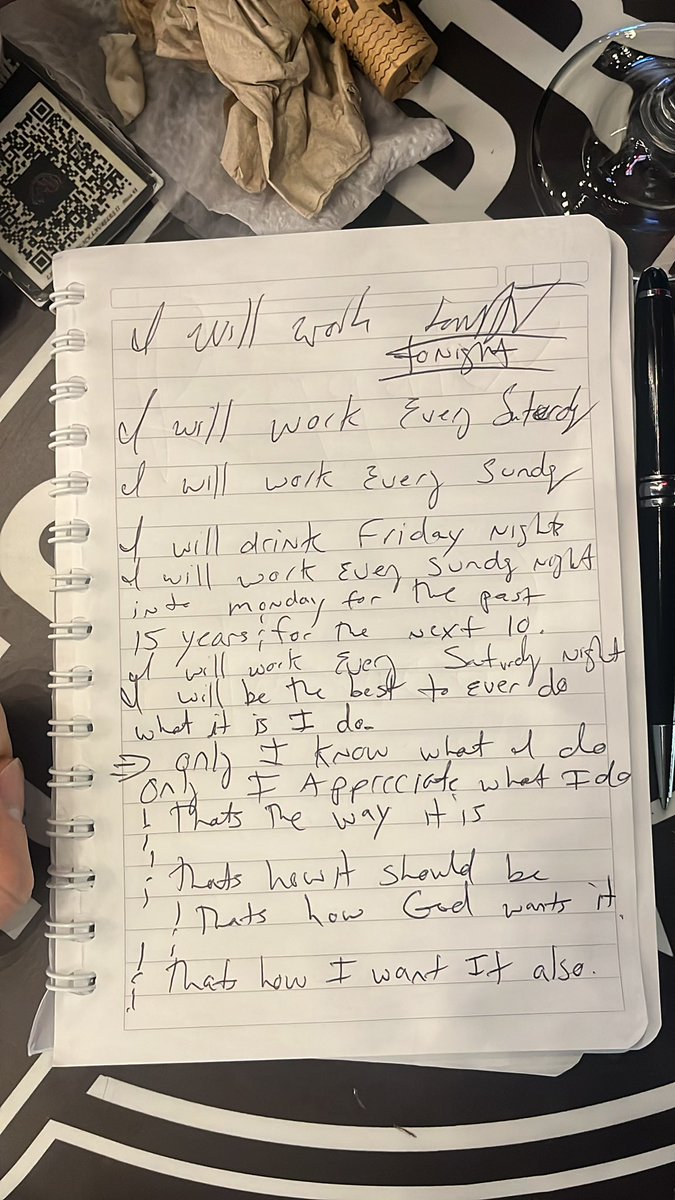 I will work
tonight
I will work Every Saterdy
I will work Every Sundy
I will drink Friday Night
I will work Every Sundy Night
into monday for the past
15 years; for the next 10.
I will work Every Saturdy Night
I will be the best to Ever do
what it is I do.
⇒ only I know what I do
only I Appreciate what I do
! Thats The way it is
! Thats how it should be
! Thats how God wants it.
! Thats how I want It also.